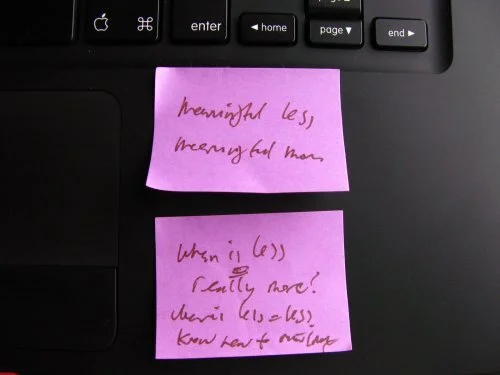 ⌘
enter
◄ home
page
page ▼
end ►
Meaningful less,
meaningful more
When is less
really more?
when is less = less
Know how to